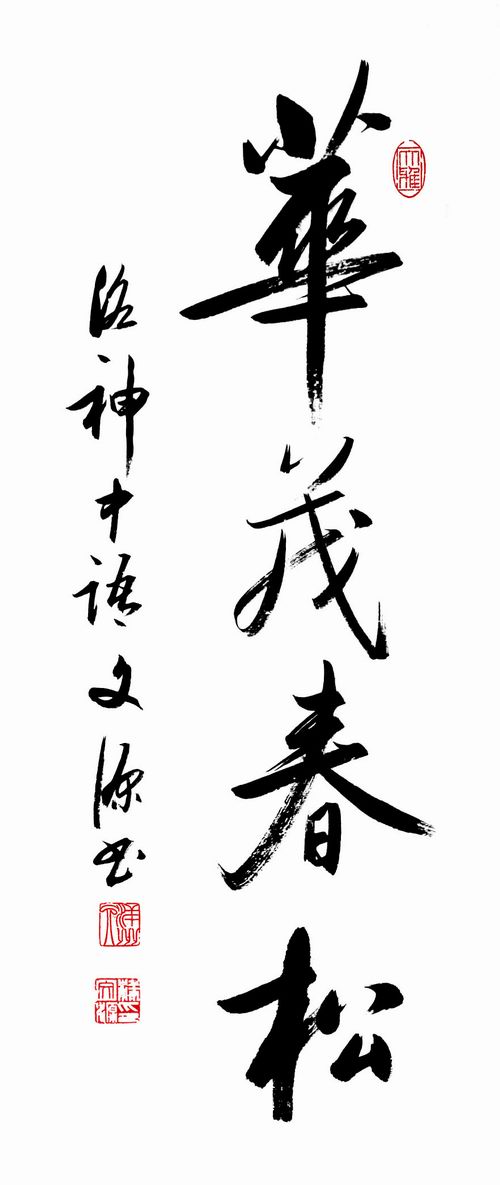 華茂春松
洛神中語文源书